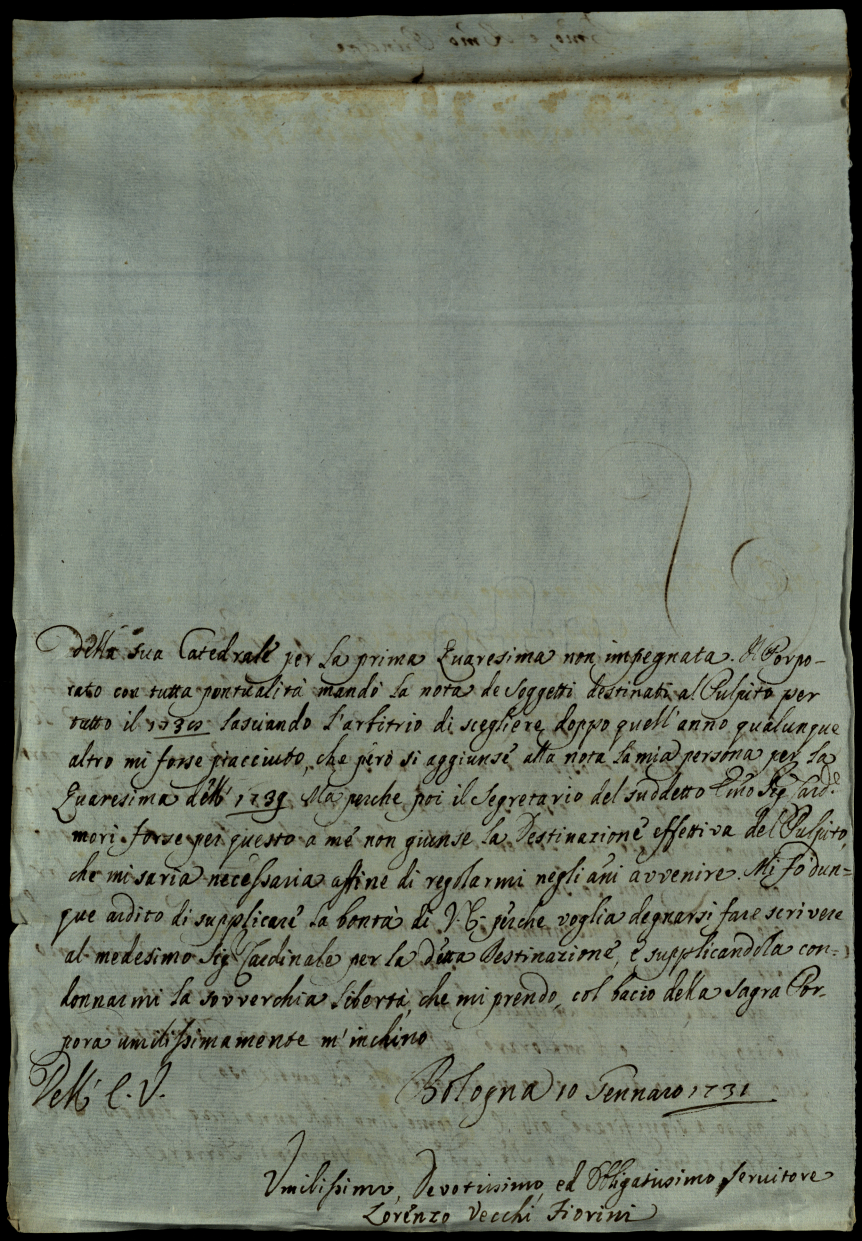 della sua Catedrale per la prima Quaresima non impegnata. Il Porpo-
rato con tutta pontualità mandò la nota de Soggetti destinati al Pulpito per
tutto il lasciando l'arbitrio di scegliere doppo quell'anno qualunque
altro mi forse piacciuto, che però si aggiunse alla nota la mia persona per la
Quaresima dell' 1739. Ma perche poi il Segretario del suddetto Emo Sig. Card.e
morì forse per questo a mé non giunse la Destinazione effettiva del Pulpito,
che mi saria necessaria affine di regolarmi negli ani avvenire. Mi fò dun=
que ardito di supplicare la bontà di V. E. perche voglia degnarsi fare scrivere
al medesimo Sig. Cardinale per la detta Destinazione, e supplicandola con=
donnarmi la sovverchia libertà, che mi prendo, col bacio della sagra Por-
pora umilissimamente m'inchino
Dell' E. V. Bologna 10 Gennaro 1731
Umilissimo, Devotissimo, ed Obligatissimo Servitore
Lorenzo Vecchi Fiorini